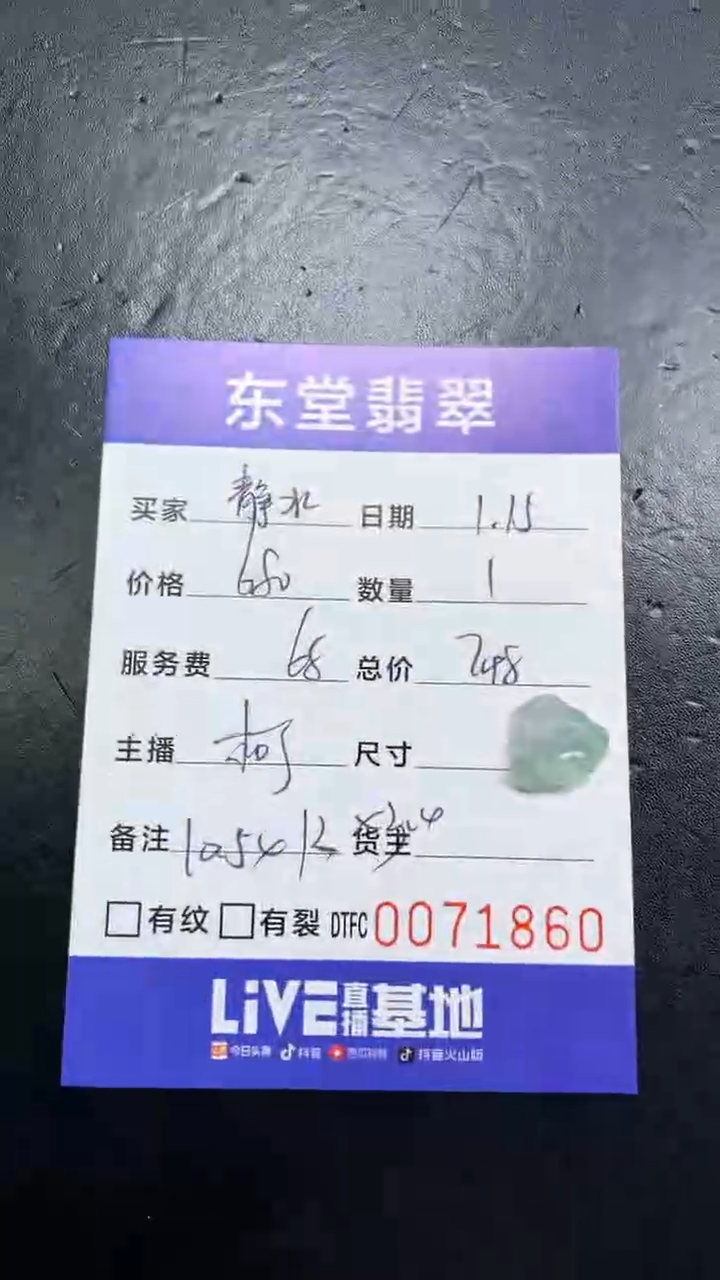 东堂翡翠
买家 静水 日期 1.15
价格 680 数量 1
服务费 68 总价 748
主播 柯 尺寸
备注 货主
有纹 有裂 DTFC 0071860
LiVE直播基地
今日头条 抖音 西瓜视频 抖音火山版